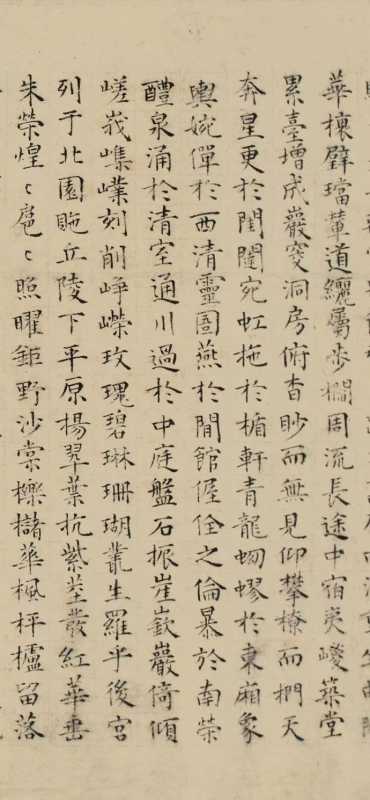 華榱璧璫輦道纚屬步櫩周流長途中宿夷嵕築堂
累臺增成巖窔洞房俯杳眇而無見仰攀橑而捫天
奔星更於閨闥宛虹拖於楯軒青龍蚴蟉於東廂象
輿婉僤於西清靈圄燕於閒館偓佺之倫暴於南榮
醴泉涌於清室通川過於中庭盤石振崖嶔巖倚傾
嵯峩㠍嶪刻削崢嶸玫瑰碧琳珊瑚叢生羅乎後宮
列于北園貤丘陵下平原揚翠葉抗紫莖發紅華垂
朱榮煌〻扈〻照曜鉅野沙棠櫟櫧華楓枰櫨留落